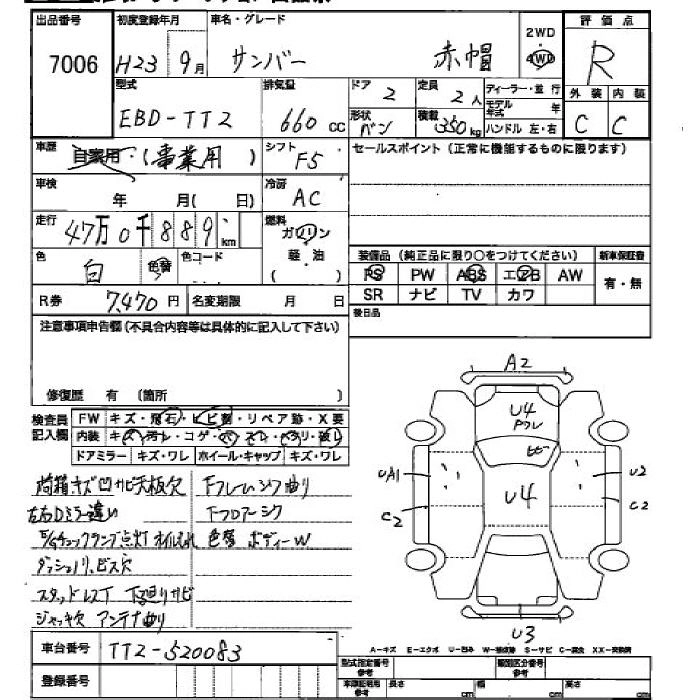 出品番号 初度登録年月 車名・グレード 2WD 評価点
7006 H23 9月 サンバー 赤帽 4WD R
型式 排気量 ドア 定員 ディーラー・並行 外装 内装
EBD-TT2 660cc 2 2人 モデル年式 年 C C
形状 バン 積載 350kg ハンドル 左・右
車歴 自家用・(事業用) シフト F5 セールスポイント(正常に機能するものに限ります)
車検 年 月(日) 冷房 AC
走行 47万0千889km 燃料 ガソリン
軽・油
( )
色 白 色替 色コード
装備品(純正品に限り○をつけてください) 新車保証書
PS PW ABS エアB AW 有・無
SR ナビ TV カワ
R券 7,470円 名変期限 月 日 後日品
注意事項申告欄(不具合内容等は具体的に記入して下さい)
修復歴 有 (箇所 )
検査員記入欄 FW キズ・飛石・ヒビ割・リペア跡・X要
内装 キズ・汚レ・コゲ・穴・スレ・ヘタリ・破レ
ドアミラー キズ・ワレ ホイール・キャップ キズ・ワレ
荷箱キズ凹サビ天板欠 Fフレームシワ曲り
左右Dミラー違い Fフロアーシワ
E/Gチェックランプ点灯 オイルもれ 色替 ボディーW
ダッシュノリ、ビス穴
スタッドレスT 下廻りサビ
ジャッキ欠 アンテナ曲り
A2
U4
Fフレ
ヒビ
UA1 U4 U2
C2 C2
U3
車台番号 TT2-520083
登録番号
A-キズ E-エクボ U-凹み W-補修跡 S-サビ C-腐食 XX-交換済
型式指定番号 参考 類別区分番号 参考
車庫証明用参考 長さ cm 幅 cm 高さ cm